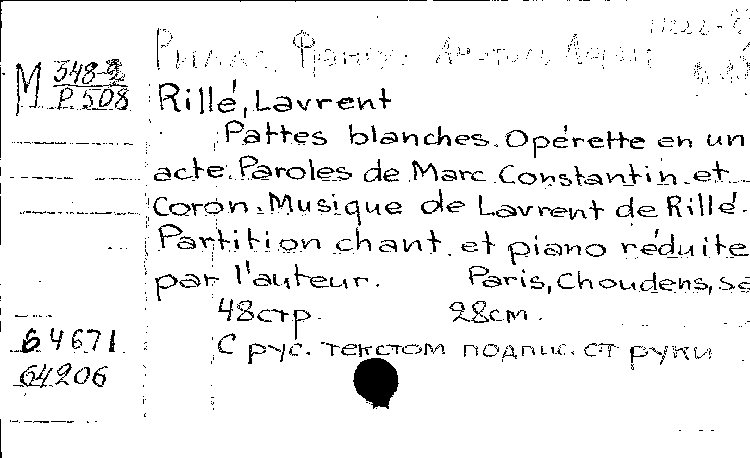 Рилле, Франсуа Анатоль Лоран
М 348-2
Р 508
Rillé, Lavrent
Pattes blanches. Opérette en un
acte. Paroles de Marc Constantin et
Coron. Musique de Lavrent de Rillé.
Partition chant et piano réduite
par l'auteur. Paris, Choudens, s
48стр. 28cm.
64671 С рус. текстом подпис. от руки
64206